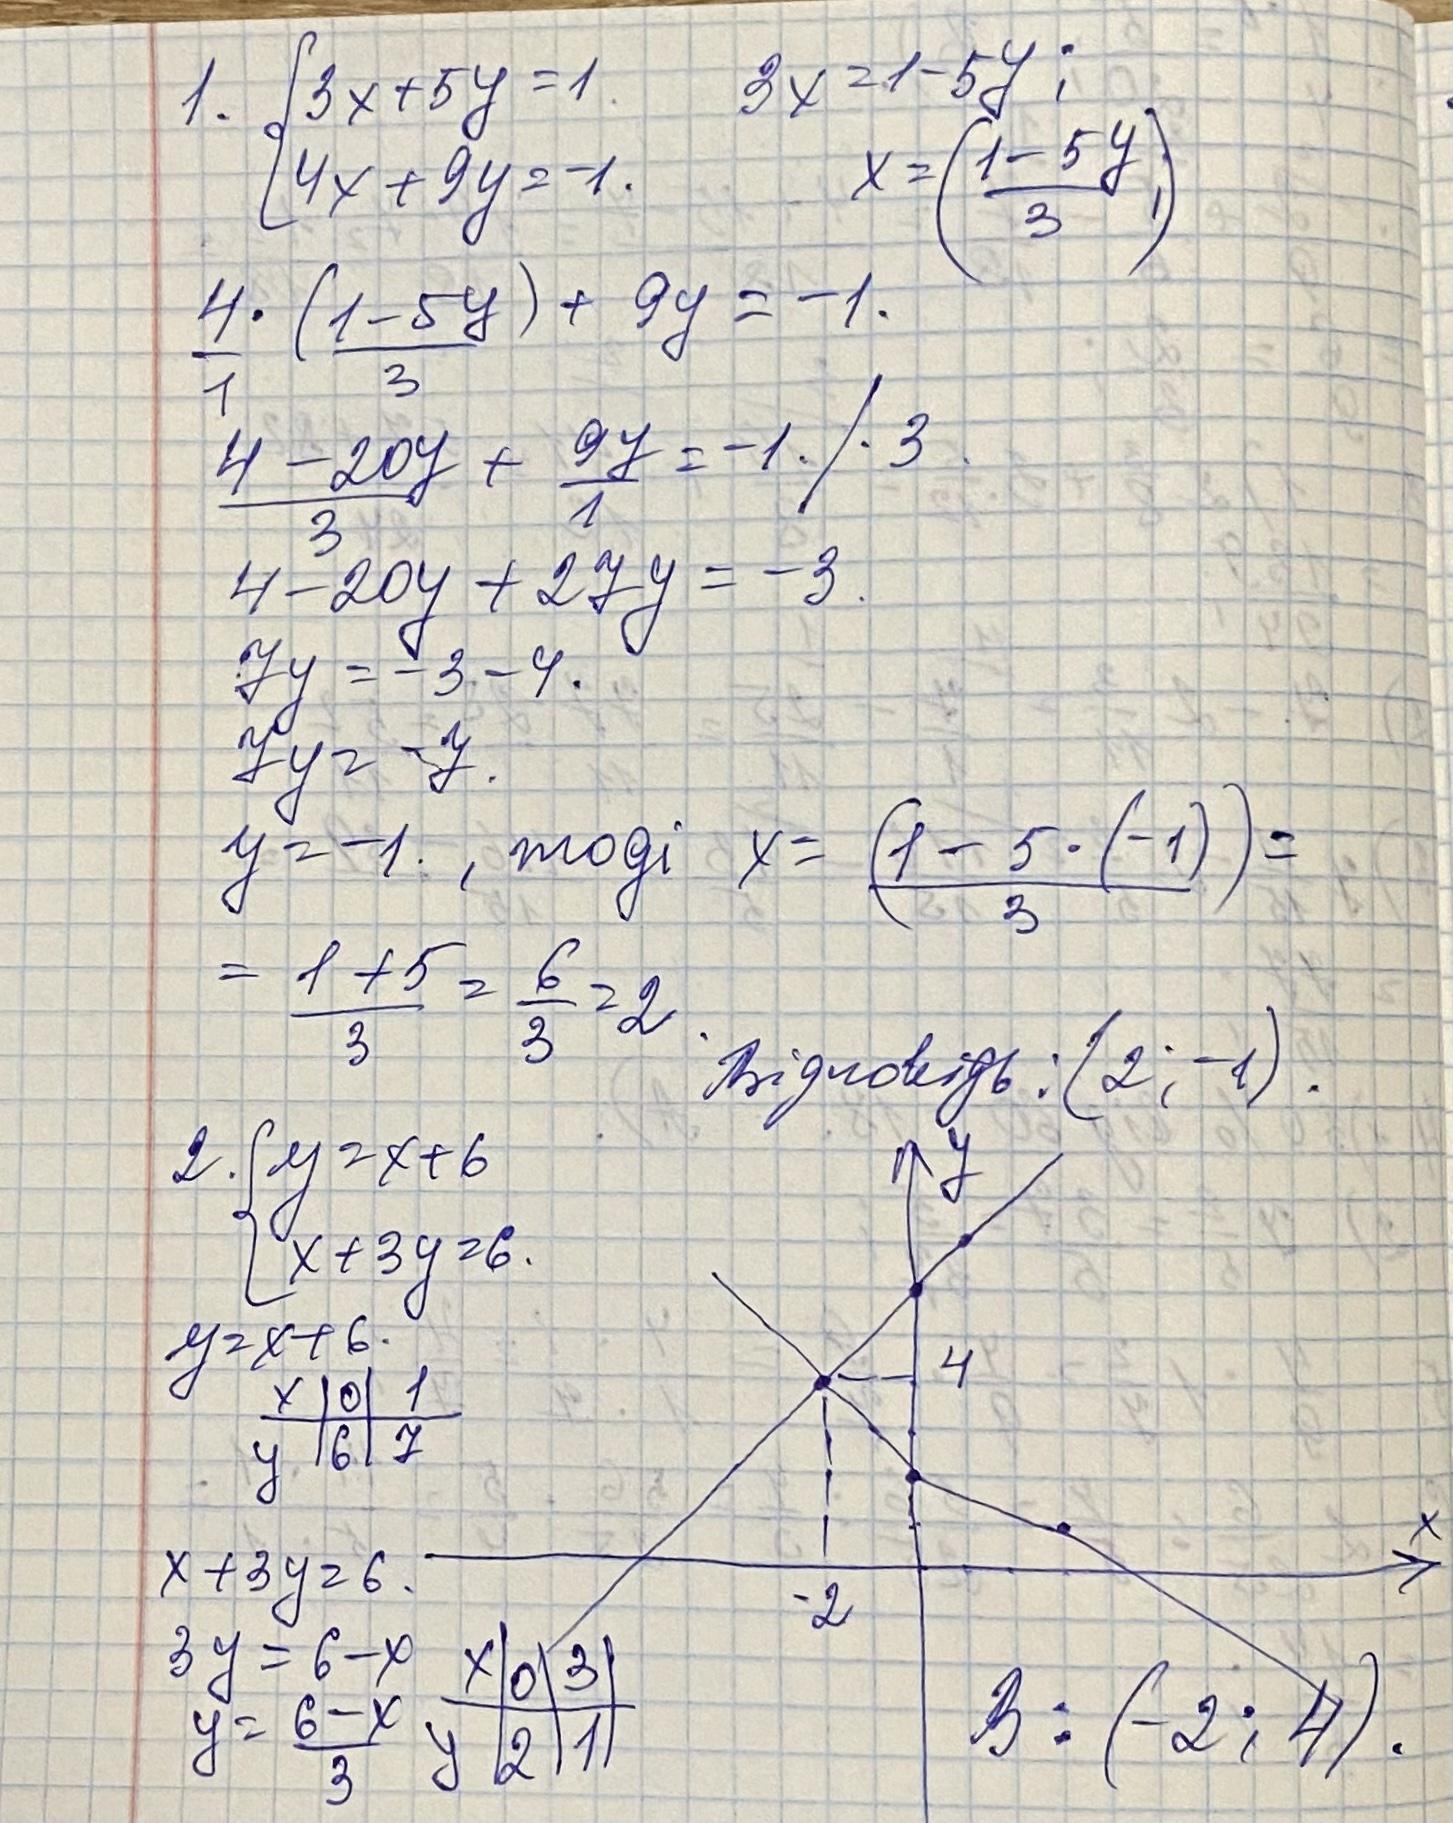 1. {3x+5y=1.
4x+9y=-1.
3x=1-5y;
x=((1-5y)/3);
4/1·((1-5y)/3)+9y=-1.
(4-20y)/3+9y/1=-1. /·3.
4-20y+27y=-3.
7y=-3-4.
7y=-7.
y=-1., тоді x=((1-5·(-1))/3)=
=(1+5)/3=6/3=2.
Відповідь: (2;-1).
2. {y=x+6
x+3y=6.
y=x+6.
x | 0 | 1
y | 6 | 7
x+3y=6.
3y=6-x
y=(6-x)/3
x | 0 | 3
y | 2 | 1
y
4
x
-2
В: (-2; 4).